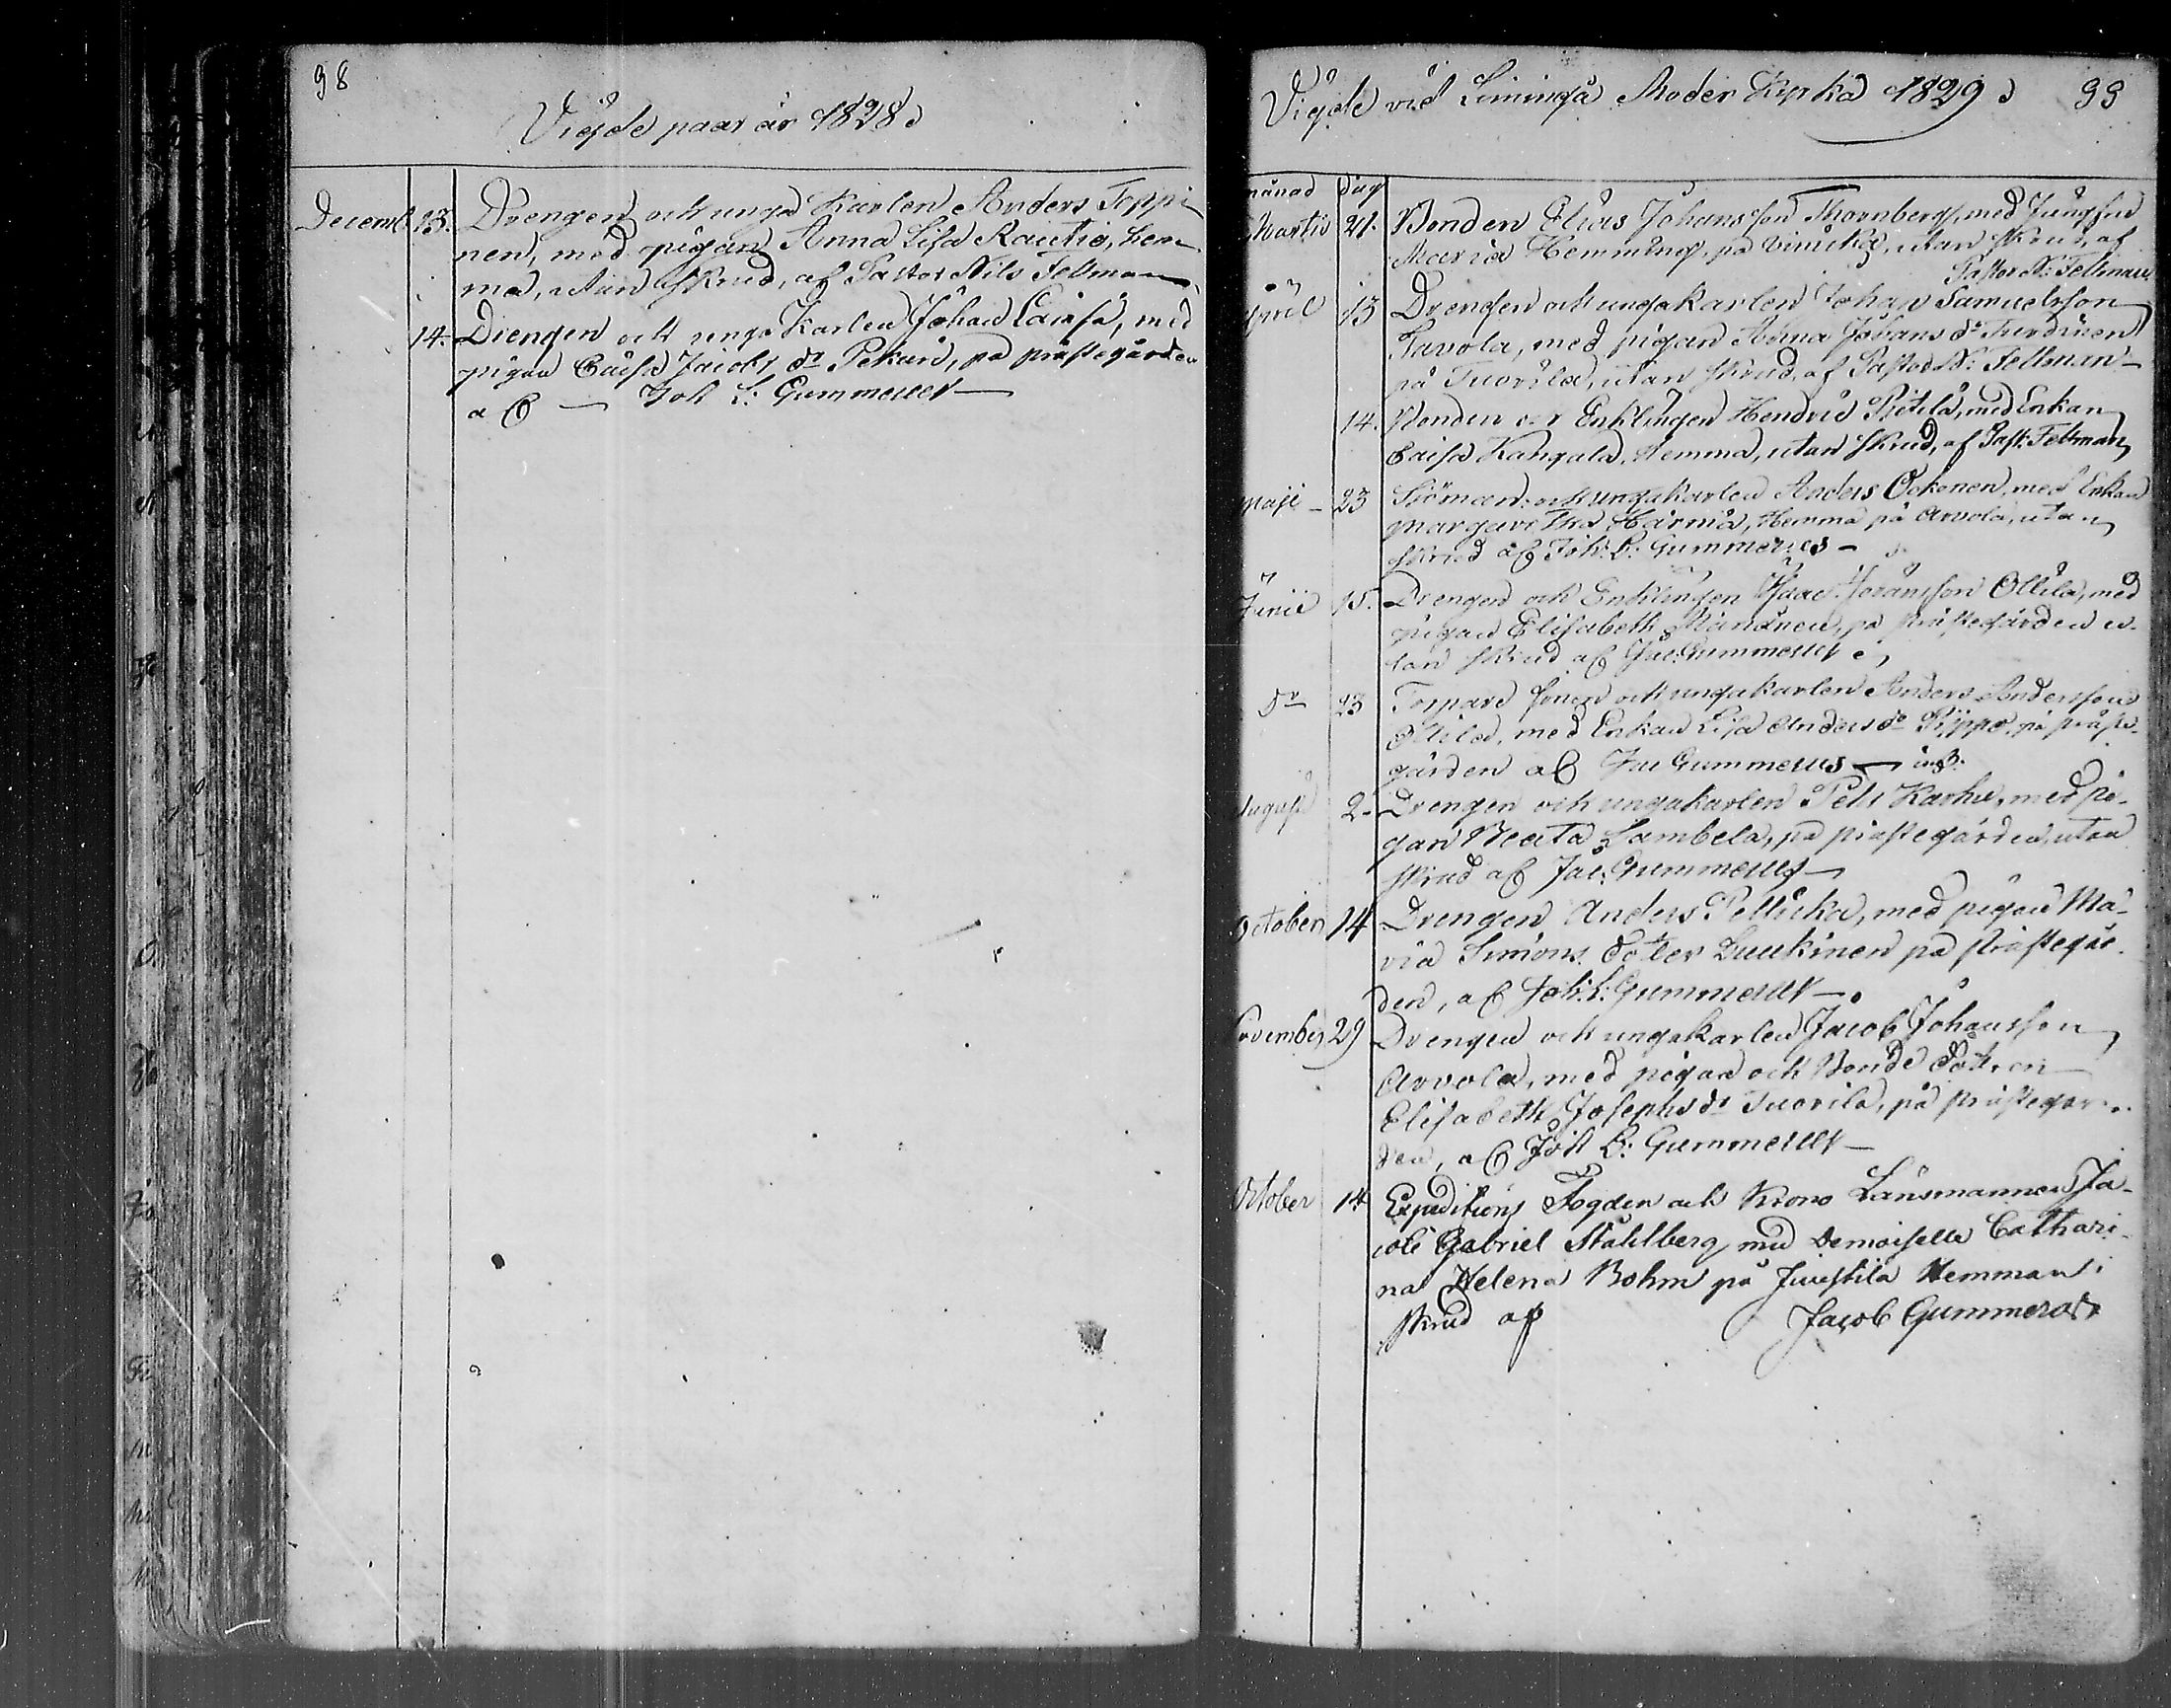 98
Vigde paar år 1828
Decemb. 13. Drengen och unga Karlen Anders Toppi-
nen, med pigan Anna Lisa Rautio, hem-
ma, utan skrud, af Pastor Nils Fellman
14. Drengen och unga Karlen Johan Caisa, med
pigan Caisa Jacobs dr Pekuri, på prästegården
af Joh L: Gummerus
Vigde vid Limingå Moder Kyrka 1829 99
månad dag
Martii 21. Bonden Elias Johansson Thornberg, med Jungfru
Maria Hemming, på utan skrud, af
Pastor N: Fellman
April 13 Drengen och ungakarlen Johan Samuelsson
Savola, med pigan Anna Johans dr
på Tuorila, utan skrud, af Pastor N: Fellman
14. Bonden och Enklingen Hendric Pietilä, med Enkan
Caisa Kangala, Hemma, utan skrud, af Past: Fellman
Maji 23 Sjöman och ungakarlen Anders Ockonen, med Enkan
Margaretha Härmä, Hemma på Arvola, utan
skrud af Joh: L: Gummerus
Junii 15. Drengen och Enklingen Isaac Ollila, med
pigan Elisabeth på Prästegården u-
tan skrud af Jac: Gummerus
Dr 23 Torpare sonen och ungakarlen Anders Andersson
Ollila, med Enkan Lisa Anders dr Piippo, på präste-
gården af Jac Gummerus
August 2. Drengen och ungakarlen Petr Karhu, med pi-
gan Beata Lambela, på prästegården, utan
skrud af Jac: Gummerus
October 14 Drengen Anders Pellicka, med pigan Ma-
ria Simons dotter Luukinen på Prästegår-
den, af Joh: L: Gummerus
November 29 Drengen och ungakarlen Jacob Johansson
Arvola, med pigan och Bonde Dottren
Elisabeth Josephs dr Tuorila, på prästegår-
den, af Joh L: Gummerus
October 14 Expeditions Fogden och Krono Länsmannen Ja-
cob Gabriel Ståhlberg med Demoiselle Cathari-
na Helena Bohm på Juustila Hemman i
skrud af Jacob Gummerus